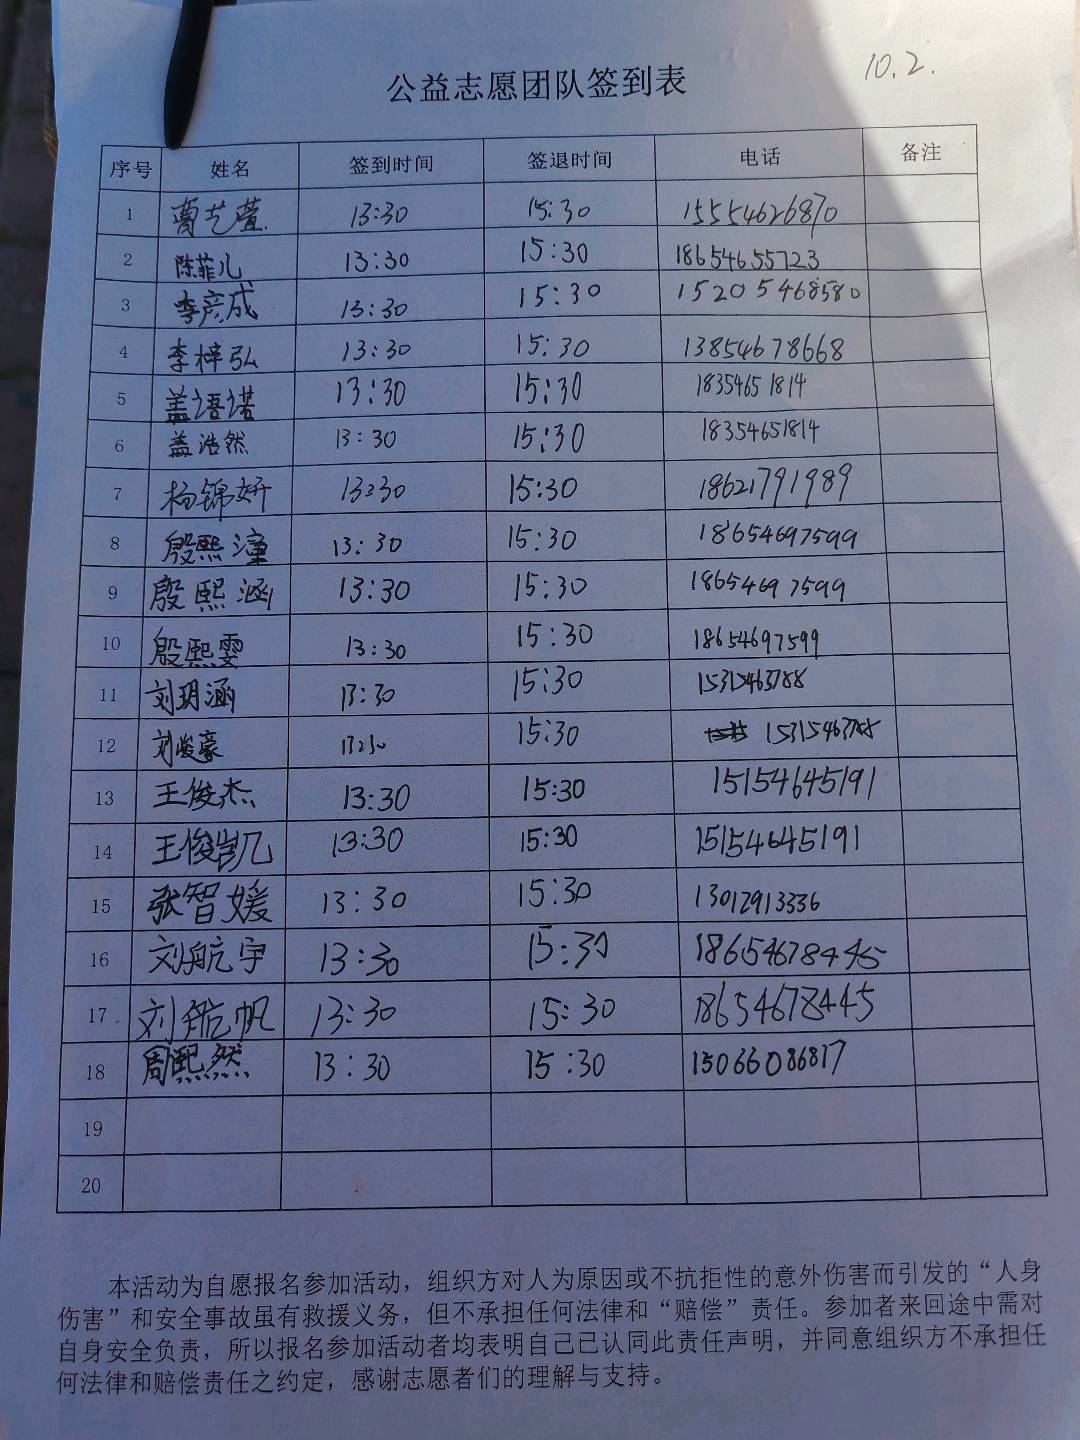 10.2.
公益志愿团队签到表
序号 姓名 签到时间 签退时间 电话 备注
1 曹艺萱 13:30 15:30 15554626870
2 陈菲儿 13:30 15:30 18654655723
3 李彦成 13:30 15:30 15205468580
4 李梓弘 13:30 15:30 13854678668
5 盖语诺 13:30 15:30 18354651814
6 盖浩然 13:30 15:30 18354651814
7 杨锦妍 13:30 15:30 18621791989
8 殷熙潼 13:30 15:30 18654697599
9 殷熙涵 13:30 15:30 18654697599
10 殷熙雯 13:30 15:30 18654697599
11 刘玥涵 13:30 15:30 15315463788
12 刘俊豪 13:30 15:30 15315463788
13 王俊杰 13:30 15:30 15154645191
14 王俊凯 13:30 15:30 15154645191
15 张智媛 13:30 15:30 13012913336
16 刘航宇 13:30 15:30 18654678445
17 刘航帆 13:30 15:30 18654678445
18 周熙然 13:30 15:30 15066086817
19
20
本活动为自愿报名参加活动，组织方对人为原因或不抗拒性的意外伤害而引发的“人身
伤害”和安全事故虽有救援义务，但不承担任何法律和“赔偿”责任。参加者来回途中需对
自身安全负责，所以报名参加活动者均表明自己己认同此责任声明，并同意组织方不承担任
何法律和赔偿责任之约定，感谢志愿者们的理解与支持。